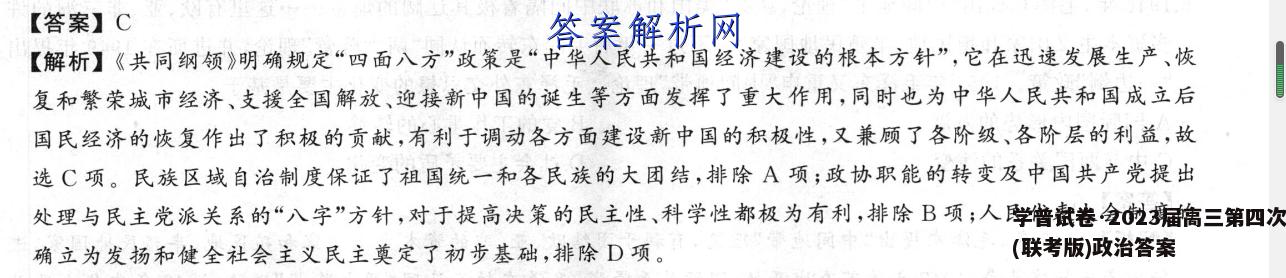 【答案】C
答案解析网
【解析】《共同纲领》明确规定“四面八方”政策是“中华人民共和国经济建设的根本方针”,它在迅速发展生产、恢
复和繁荣城市经济、支援全国解放、迎接新中国的诞生等方面发挥了重大作用,同时也为中华人民共和国成立后
国民经济的恢复作出了积极的贡献,有利于调动各方面建设新中国的积极性,又兼顾了各阶级、各阶层的利益,故
选 C 项。民族区域自治制度保证了祖国统一和各民族的大团结,排除 A 项;政协职能的转变及中国共产党提出
处理与民主党派关系的“八字”方针,对于提高决策的民主性、科学性都极为有利,排除 B 项;人民
学普试卷·2023届高三第四次
(联考版)政治答案
确立为发扬和健全社会主义民主奠定了初步基础,排除 D 项。